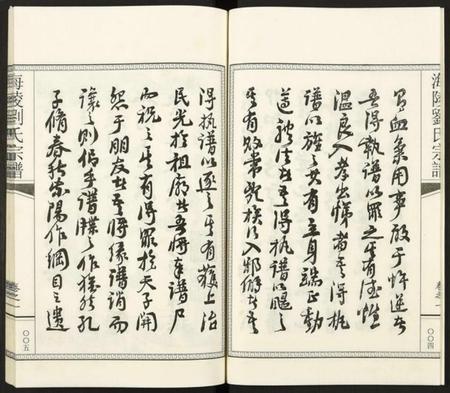 海陵劉氏宗譜
卷之一
〇〇四
血氣用事敢于忤逆者
吾得執譜以罪之其有德性
溫良入孝出悌者吾得執
譜以旌之其有立身端正動
遵禮法者吾得執譜以颺之
其有敗常亂族以入邪僻者吾
得執譜以逐之其有獲上治
民光於祖廟者吾將奉譜尸
而祝之其有得罪於天子開
怨于朋友者吾得緣譜誚而
讓之則乎譜牒之作於孔
子脩春秋紫陽作綱目之遺
海陵劉氏宗譜
卷之一
〇〇五